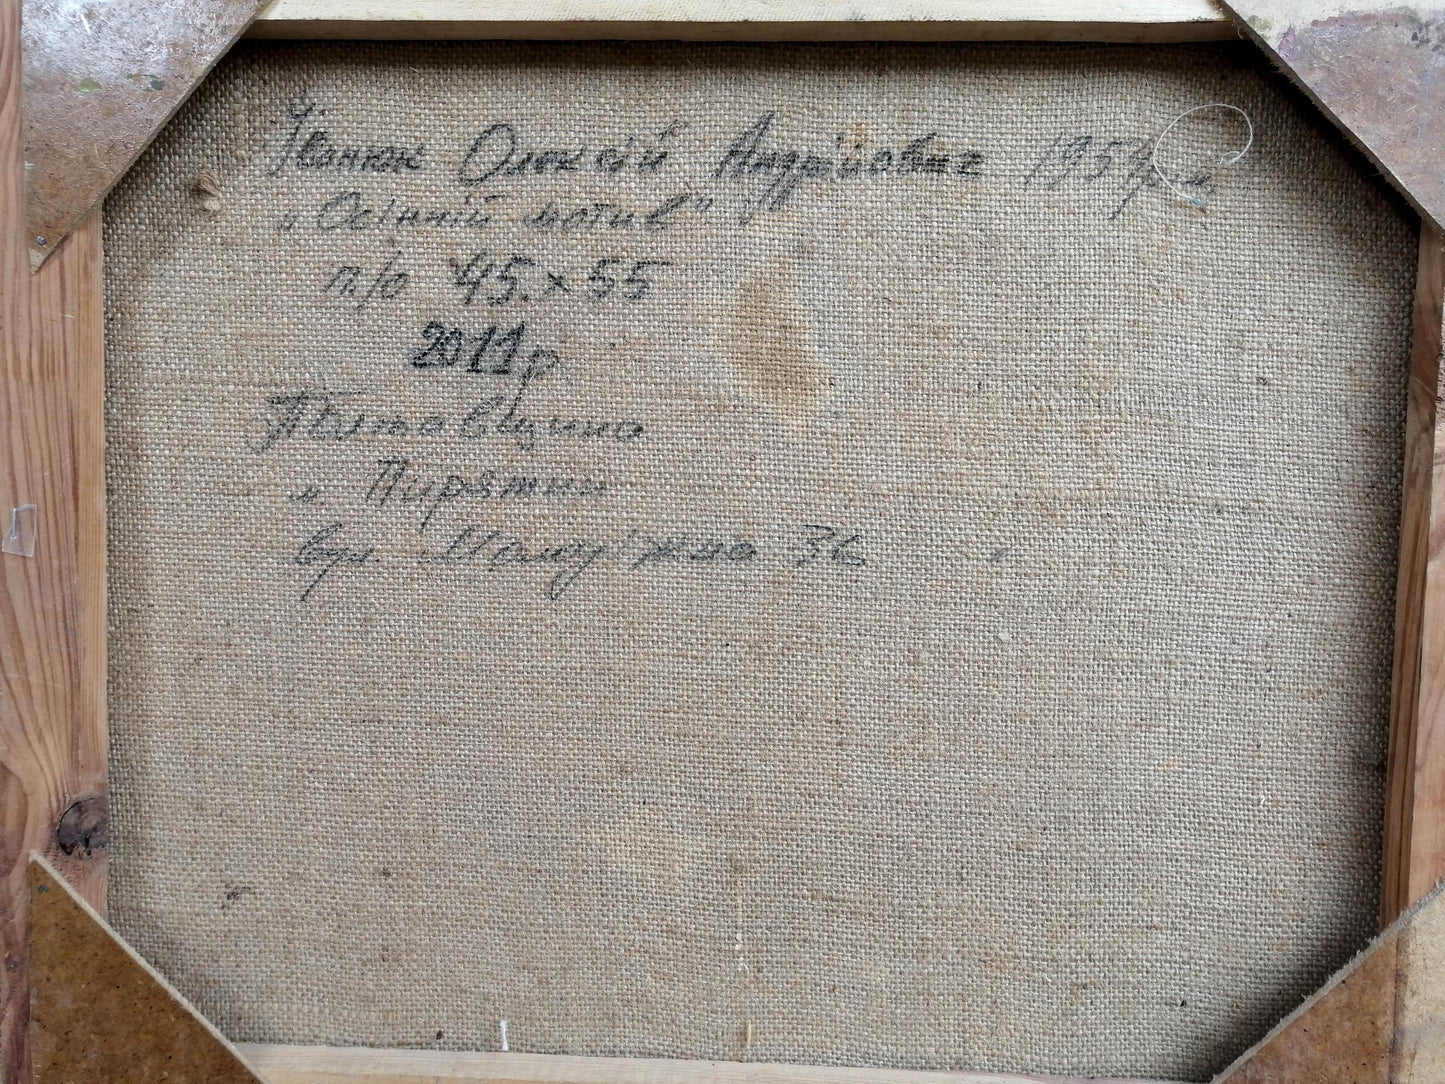 Іванюк Олексій Андрійович 1954р.н.
„Осінній мотив"
п/о 45х55
2011р
Полтавщина
м Пирятин
вул